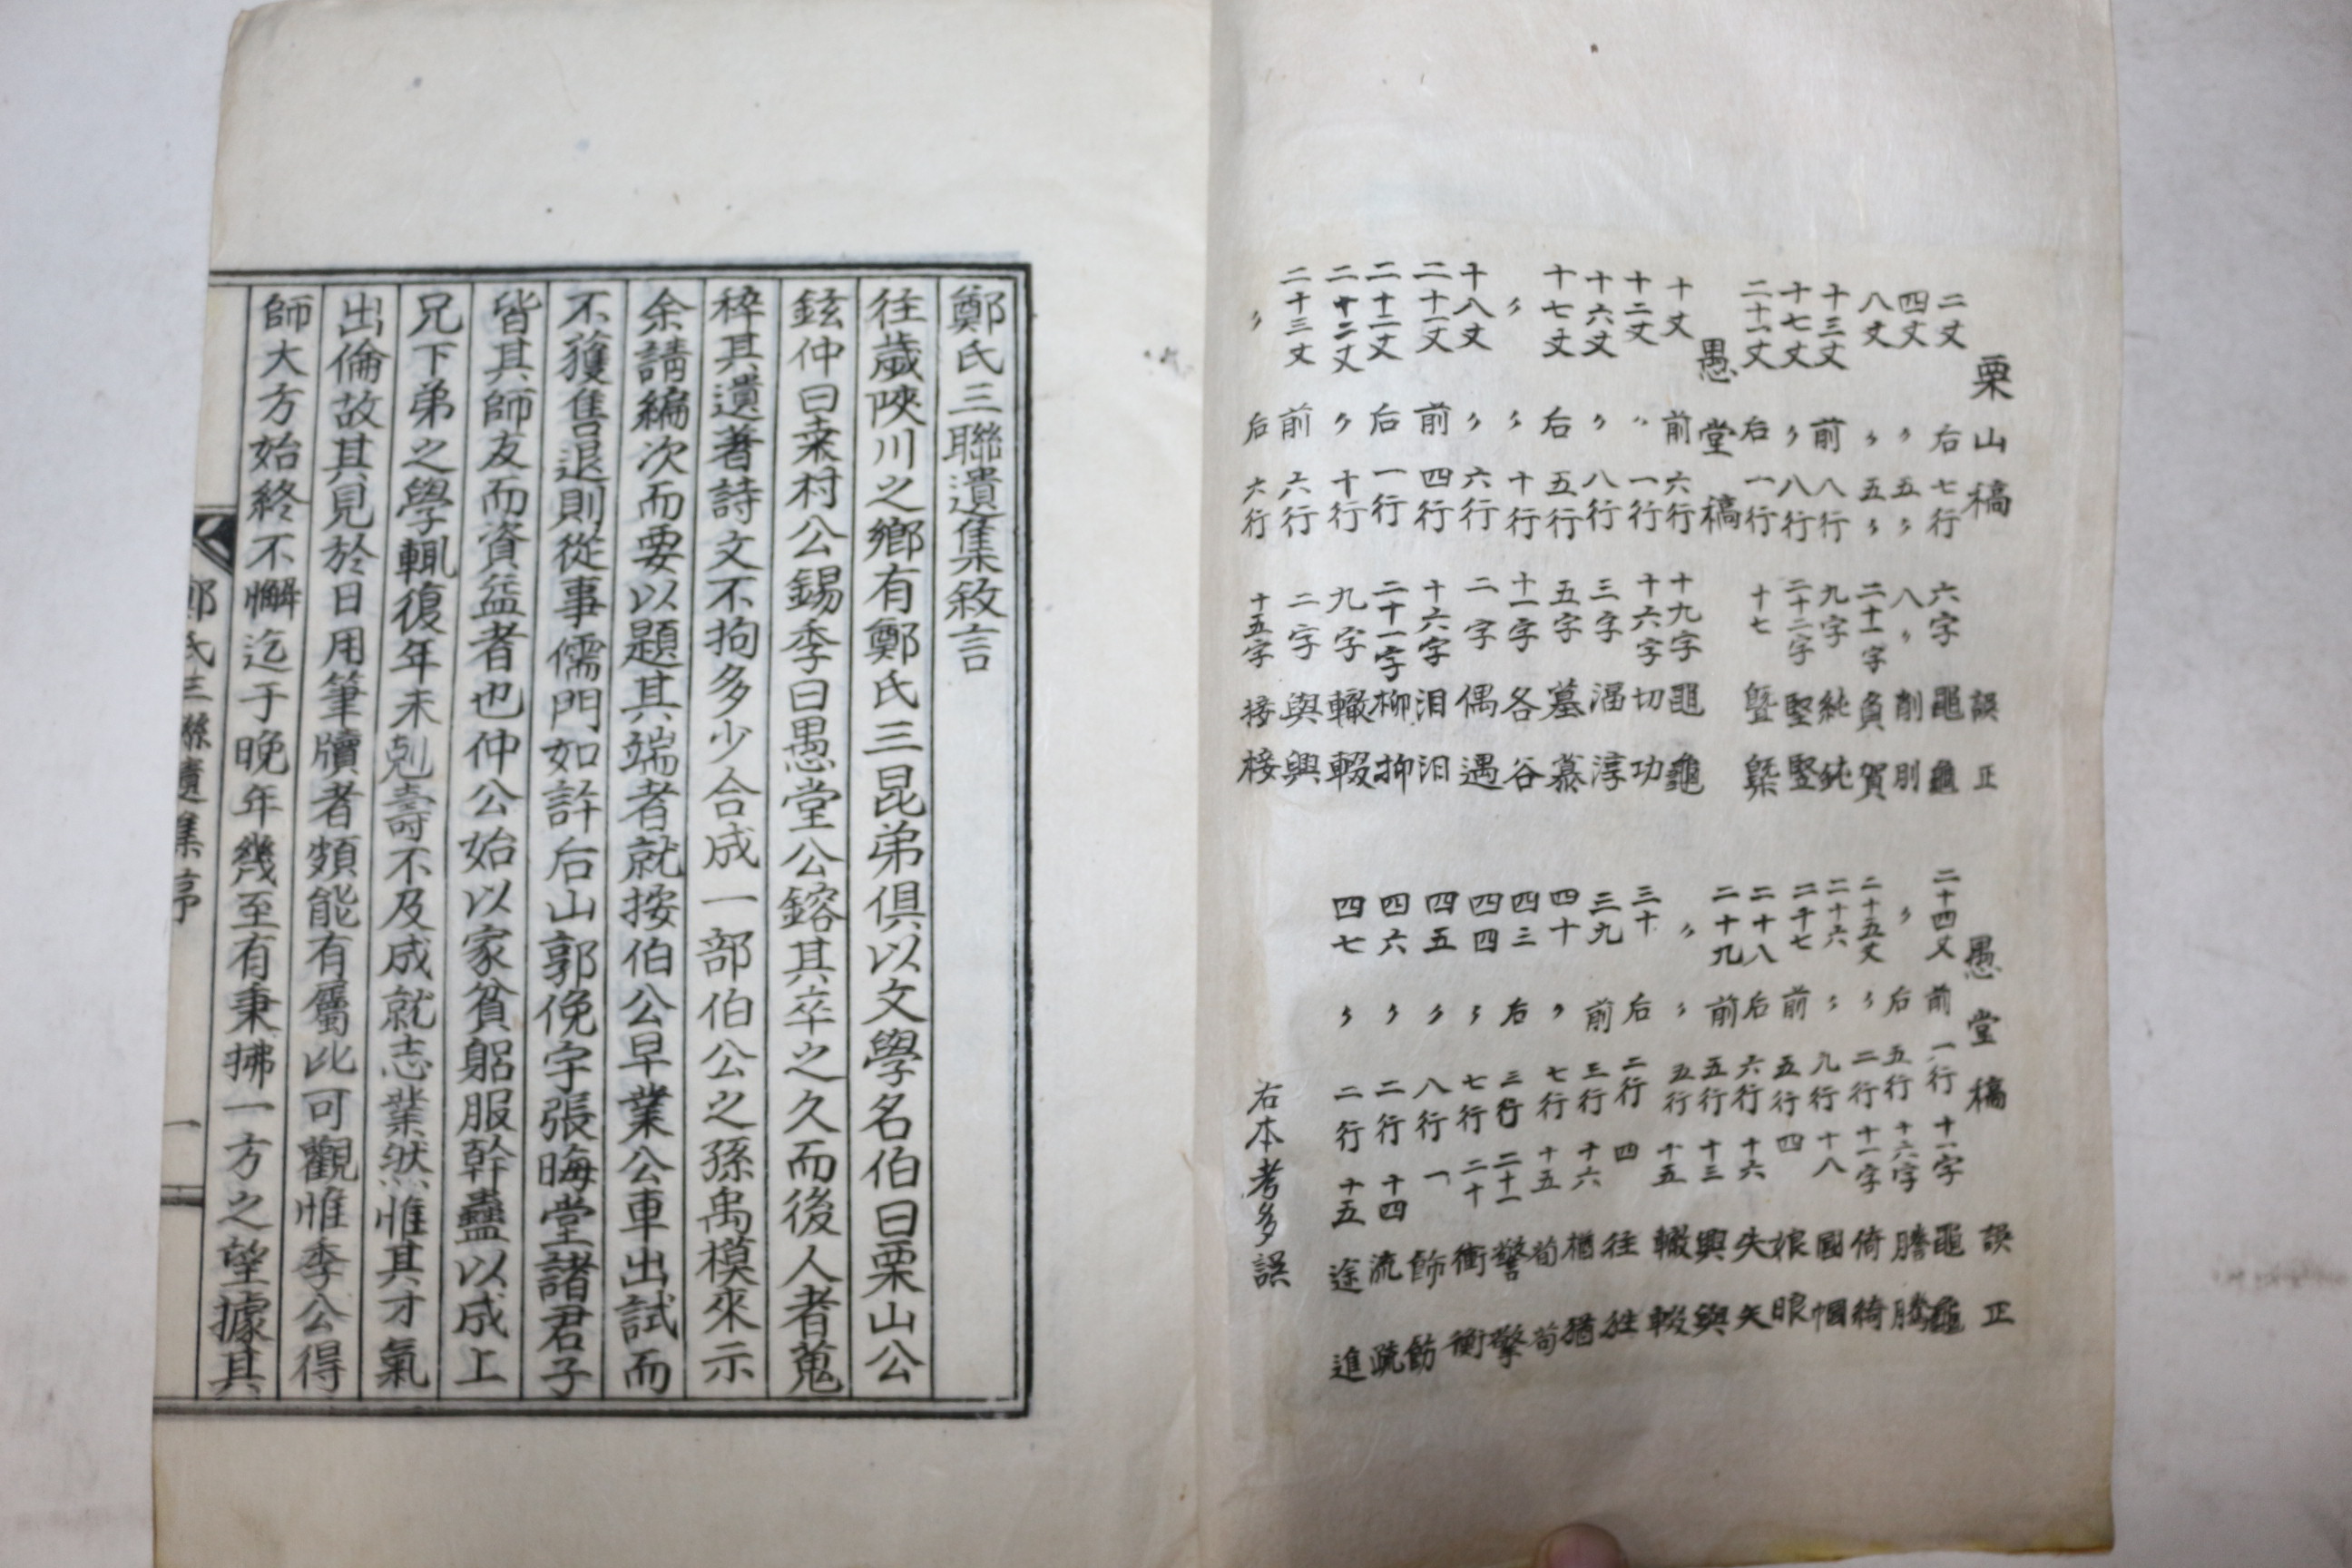 栗山稿 誤 正
二丈 右 七行 六字 黽 龜
四丈 〃 五〃 八〃 削 別
八丈 〃 五〃 二十一字 負 賀
十三丈 前 八行 九字 純 鈍
十七丈 〃 八行 二十二字 堅 竪
二十一丈 后 一行 十七 曁 槩
愚堂稿
十丈 前 六行 十九字 黽 龜
十二丈 〃 一行 十六字 切 功
十六丈 〃 八行 三字 淳
十七丈 后 五行 五字 墓 慕
〃 〃 十行 十一字 各 谷
十八丈 〃 六行 二字 偶 遇
二十一丈 前 四行 十六字 泪 汨
二十二丈 后 一行 二十一字 柳 抑
二十二丈 〃 十行 九字 轍 輟
二十三丈 前 六行 二字 與 興
〃 后 六行 十五字 接 椄
愚堂稿 誤 正
二十四丈 前 一行 十一字 黽 龜
〃 后 五行 十六字 謄 騰
二十五丈 〃 二行 十一字 倚 綺
二十六 〃 九行 十八 國 幗
二十七 前 五行 四 娘 眼
二十八 后 六行 十六 失 矢
二十九 前 五行 十三 興 與
〃 〃 五行 十五 轍 輟
三十 后 二行 四 往 姓
三九 前 三行 十六 楢 猶
四十 〃 七行 十五 荀 苟
四三 后 三行 二十一 警 擎
四四 〃 七行 二十 衝 衡
四五 〃 八行 一 飾 飭
四六 〃 二行 十四 流 疏
四七 〃 二行 十五 途 進
右本考多誤
鄭氏三聯遺集敘言
往歲陜川之鄉有鄭氏三昆弟俱以文學名伯曰栗山公
鉉仲曰桒村公錫季曰愚堂公鎔其卒之久而後人者蒐
稡其遺著詩文不拘多少合成一部伯公之孫禹模來示
余請編次而要以題其端者就按伯公早業公車出試而
不獲售退則從事儒門如許后山郭俛宇張晦堂諸君子
皆其師友而資益者也仲公始以家貧躬服幹蠱以成上
兄下弟之學輒復年未剋壽不及成就志業然惟其才氣
出倫故其見於日用筆牘者頗能有屬比可觀惟季公得
師大方始終不懈迄于晚年幾至有秉拂一方之望據其
鄭氏三聯遺集序 一